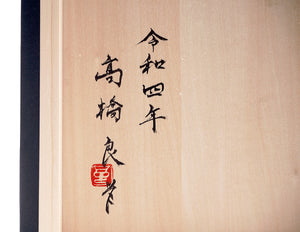 令和四年
高橋良